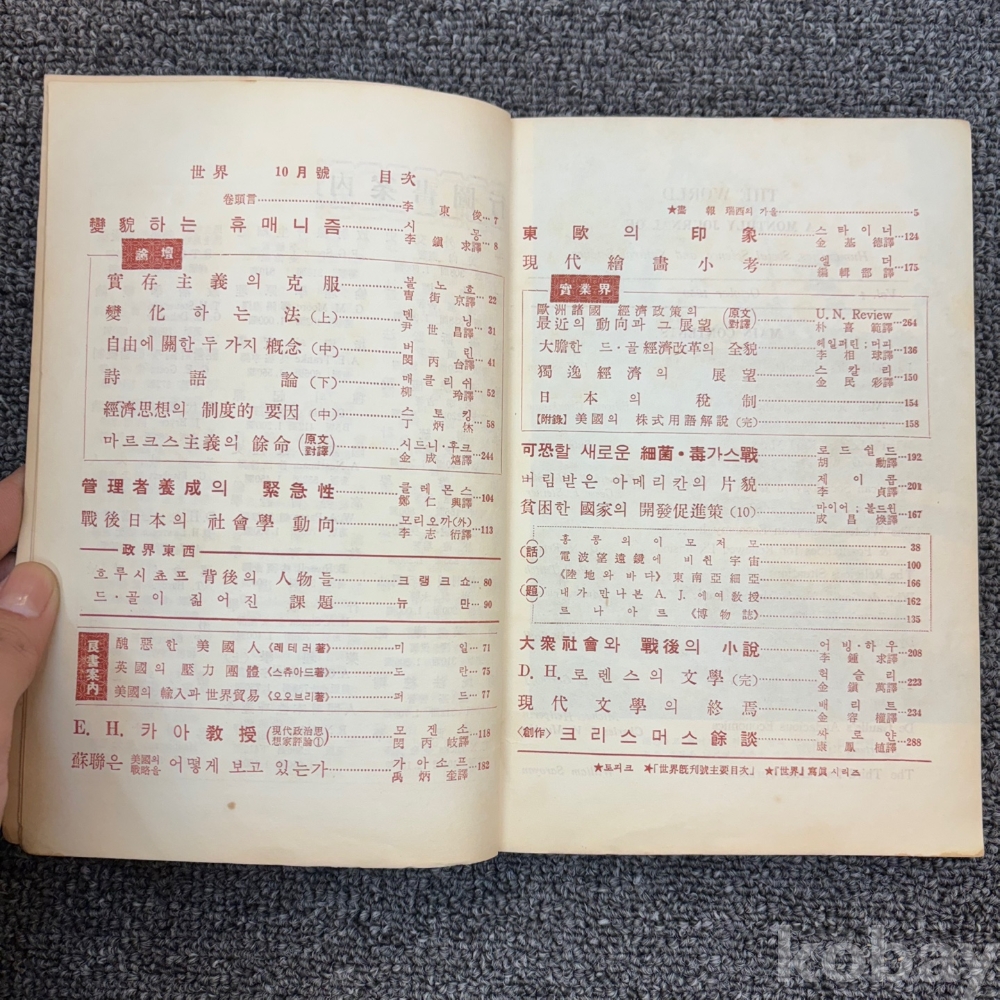 世界 10月號 目次
卷頭言 李東俊 7
變貌하는 휴매니즘 李鎭求譯 8
論壇
實存主義의 克服 볼노흐 曺街京譯 22
變化하는 法(上) 덴닝 尹世昌譯 31
自由에 關한 두 가지 槪念(中) 버린 閔丙台譯 41
詩語論(下) 매클리쉬 柳玲譯 52
經濟思想의 制度的 要因(中) 스토킹 丁炳烋 58
마르크스主義의 餘命(原文對譯) 시드니·후크 金成 244
管理者養成의 緊急性 클레몬스 鄭仁興譯 104
戰後日本의 社會學 動向 모리오까(外) 李志珩譯 113
政界東西
흐루시쵸프 背後의 人物들 크랭크쇼 80
드·골이 짊어진 課題 뉴만 90
良書案內
醜惡한 美國人〈레테러著〉 미일 71
英國의 壓力團體〈스츄아드著〉 도란 75
美國의 輸入과 世界貿易〈오오브리著〉 퍼드 77
E. H. 카아 敎授(現代政治思想家評論①) 모겐소 閔丙岐譯 118
蘇聯은 美國의 戰略을 어떻게 보고 있는가 가아소프 禹炳奎譯 182
★畫報 瑞西의 가을 5
東歐의 印象 스타이너 金基德譯 124
現代繪畫小考 엘더 編輯部譯 175
實業界
歐洲諸國 經濟政策의 最近의 動向과 그 展望(原文對譯) U. N. Review 朴喜範譯 264
大膽한 드·골 經濟改革의 全貌 헤일퍼린;머피 李相球譯 136
獨逸經濟의 展望 스칼리 金民彩譯 150
日本의 稅制 154
【附錄】美國의 株式用語解說(完) 158
可恐할 새로운 細菌·毒가스戰 로드쉴드 胡勳譯 192
버림받은 아메리칸의 片貌 제이콥 李貞譯 201
貧困한 國家의 開發促進策(10) 마이어;볼드윈 成昌煥譯 167
(話題)
홍콩의 이모저모 38
電波望遠鏡에 비친 宇宙 100
《陸地와 바다》東南亞細亞 166
내가 만나본 A. J. 에에 敎授 162
르나아르《博物誌》 135
大衆社會와 戰後의 小說 어빙·하우 李鍾求譯 208
D. H. 로렌스의 文學(完) 헉슬리 金鎭萬譯 223
現代文學의 終焉 배리트 金容權譯 234
〈創作〉크리스머스餘談 싸로얀 康鳳植譯 288
★토피크 ★「世界旣刊號主要目次」 ★『世界』寫眞시리즈
kobay